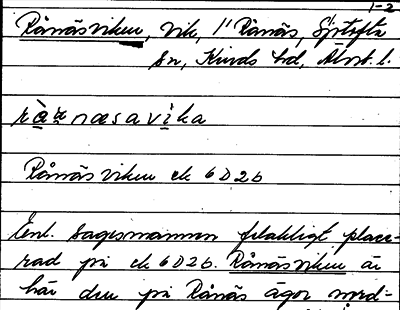 1-2
Rånäsviken, vik, 1' Rånäs, Sjötofta
sn, Kinds hd, Älvsb. l.
næsavika
Rånäsviken ek 6D2b
Enl. sagesmannen felaktigt place-
rad på ek 6D2b. Rånäsviken är
här den på Rånäs ägor nord-